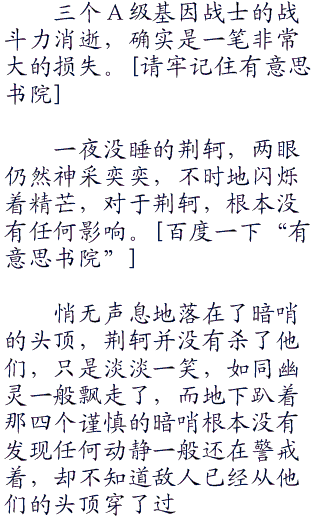 三个A级基因战士的战
斗力消逝，确实是一笔非常
大的损失。[请牢记住有意思
书院]
一夜没睡的荆轲，两眼
仍然神采奕奕，不时地闪烁
着精芒，对于荆轲，根本没
有任何影响。[百度一下“有
意思书院”]
悄无声息地落在了暗哨
的头顶，荆轲并没有杀了他
们，只是淡淡一笑，如同幽
灵一般飘走了，而地下趴着
那四个谨慎的暗哨根本没有
发现任何动静一般还在警戒
着，却不知道敌人已经从他
们的头顶穿了过